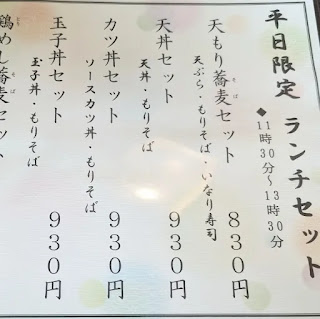 平日限定 ランチセット
◆11時30分～13時30分
天もり蕎麦セット 830円
天ぷら・もりそば・いなり寿司
天丼セット 930円
天丼・もりそば
カツ丼セット 930円
ソースカツ丼・もりそば
玉子丼セット 930円
玉子丼・もりそば
鶏めし蕎麦セット
そば